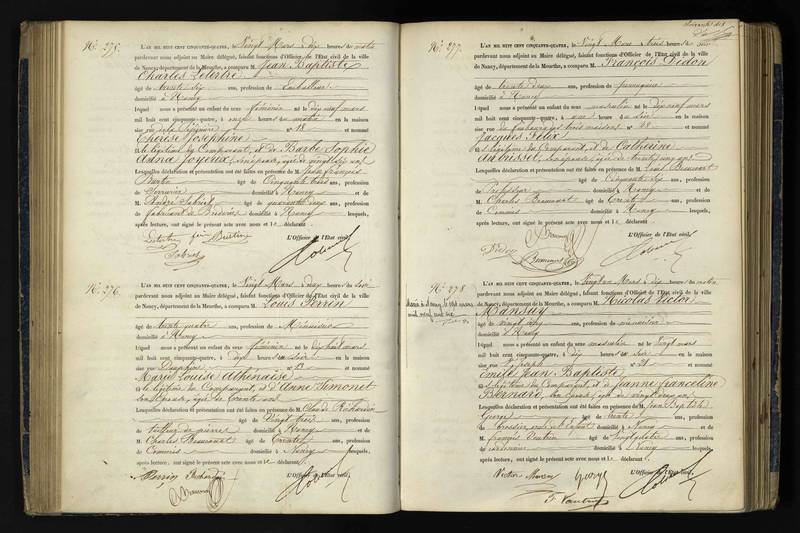 N.° 275.
L'AN MIL HUIT CENT CINQUANTE-QUATRE, le Vingt Mars à dix heures du matin
pardevant nous adjoint au Maire délégué, faisant fonctions d'Officier de l'Etat civil de la ville
de Nancy, département de la Meurthe, a comparu M. Jean Baptiste
Charles Letertre
âgé de trente six ans, profession de Emballeur
domicilié à Nancy
lequel nous a présenté un enfant du sexe féminin né le dix neuf mars
mil huit cent cinquante-quatre, à onze heures du matin en la maison
sise rue de la n° 18 et nommé
Thérèse Joséphine
fille légitime du Comparant, et de Barbe Sophie
Anna Joyeux, son épouse, âgée de vingt six ans
Lesquelles déclaration et présentation ont été faites en présence de M. Jean François
âgé de Cinquante trois ans, profession
de Serrurier domicilié à Nancy et de
M. André Gabriel âgé de quarante deux ans, profession
de fabricant de domicilié à Nancy lesquels,
après lecture, ont signé le présent acte avec nous et le déclarant.
Letertre
L'Officier de l'Etat civil,
N.° 276.
L'AN MIL HUIT CENT CINQUANTE-QUATRE, le Vingt Mars à onze heures du
pardevant nous adjoint au Maire délégué, faisant fonctions d'Officier de l'Etat civil de la ville
de Nancy, département de la Meurthe, a comparu M. Louis Perrin
âgé de trente quatre ans, profession de Menuisier
domicilié à Nancy
lequel nous a présenté un enfant du sexe féminin né le dix huit mars
mil huit cent cinquante-quatre, à dix heures du soir en la maison
sise rue Dauphine n° 13 et nommé
Marie Louise Athénaïse
fille légitime du Comparant, et d'Anne Simonet
son épouse, âgée de trente ans
Lesquelles déclaration et présentation ont été faites en présence de M. Claude Richardin
âgé de Vingt trois ans, profession
de tailleur de pierres domicilié à Nancy et de
M. Charles Beaumont âgé de trente ans, profession
de Commis domicilié à Nancy lesquels,
après lecture, ont signé le présent acte avec nous et le déclarant.
Perrin Richardin
L'Officier de l'Etat civil,
Beaumont
N.° 277.
L'AN MIL HUIT CENT CINQUANTE-QUATRE, le Vingt Mars à trois heures du soir
pardevant nous adjoint au Maire délégué, faisant fonctions d'Officier de l'Etat civil de la ville
de Nancy, département de la Meurthe, a comparu M. François Didon
âgé de trente deux ans, profession de
domicilié à Nancy
lequel nous a présenté un enfant du sexe masculin né le dix neuf mars
mil huit cent cinquante-quatre, à une heure du soir en la maison
sise rue du faubourg des trois maisons n° 28 et nommé
Jacques Félix
fils légitime du Comparant, et de Catherine
Aubrisset, son épouse, âgée de trente cinq ans
Lesquelles déclaration et présentation ont été faites en présence de M. Louis Beaumont
âgé de Cinquante six ans, profession
de Professeur domicilié à Nancy et de
M. Charles Beaumont âgé de trente ans, profession
de Commis domicilié à Nancy lesquels,
après lecture, ont signé le présent acte avec nous et le déclarant.
Didon Beaumont
L'Officier de l'Etat civil,
Beaumont
N.° 278
L'AN MIL HUIT CENT CINQUANTE-QUATRE, le Vingt un Mars à dix heures du matin
pardevant nous adjoint au Maire délégué, faisant fonctions d'Officier de l'Etat civil de la ville
de Nancy, département de la Meurthe, a comparu M. Nicolas Victor
Mansuy
âgé de vingt sept ans, profession de menuisier
domicilié à Nancy
lequel nous a présenté un enfant du sexe masculin né le Vingt mars
mil huit cent cinquante-quatre, à dix heures du soir en la maison
sise rue St Joseph n° 28 et nommé
Emile Jean Baptiste
fils légitime du Comparant, et de Jeanne Francéline
Bernard, son épouse, âgée de vingt deux ans
Lesquelles déclaration et présentation ont été faites en présence de M. Jean Baptiste
Georges âgé de trente ans, profession
de domicilié à Nancy et de
M. françois Vautrin âgé de Vingt quatre ans, profession
de domicilié à Nancy lesquels,
après lecture, ont signé le présent acte avec nous et le déclarant.
Victor Mansuy Georges
L'Officier de l'Etat civil,
F. Vautrin